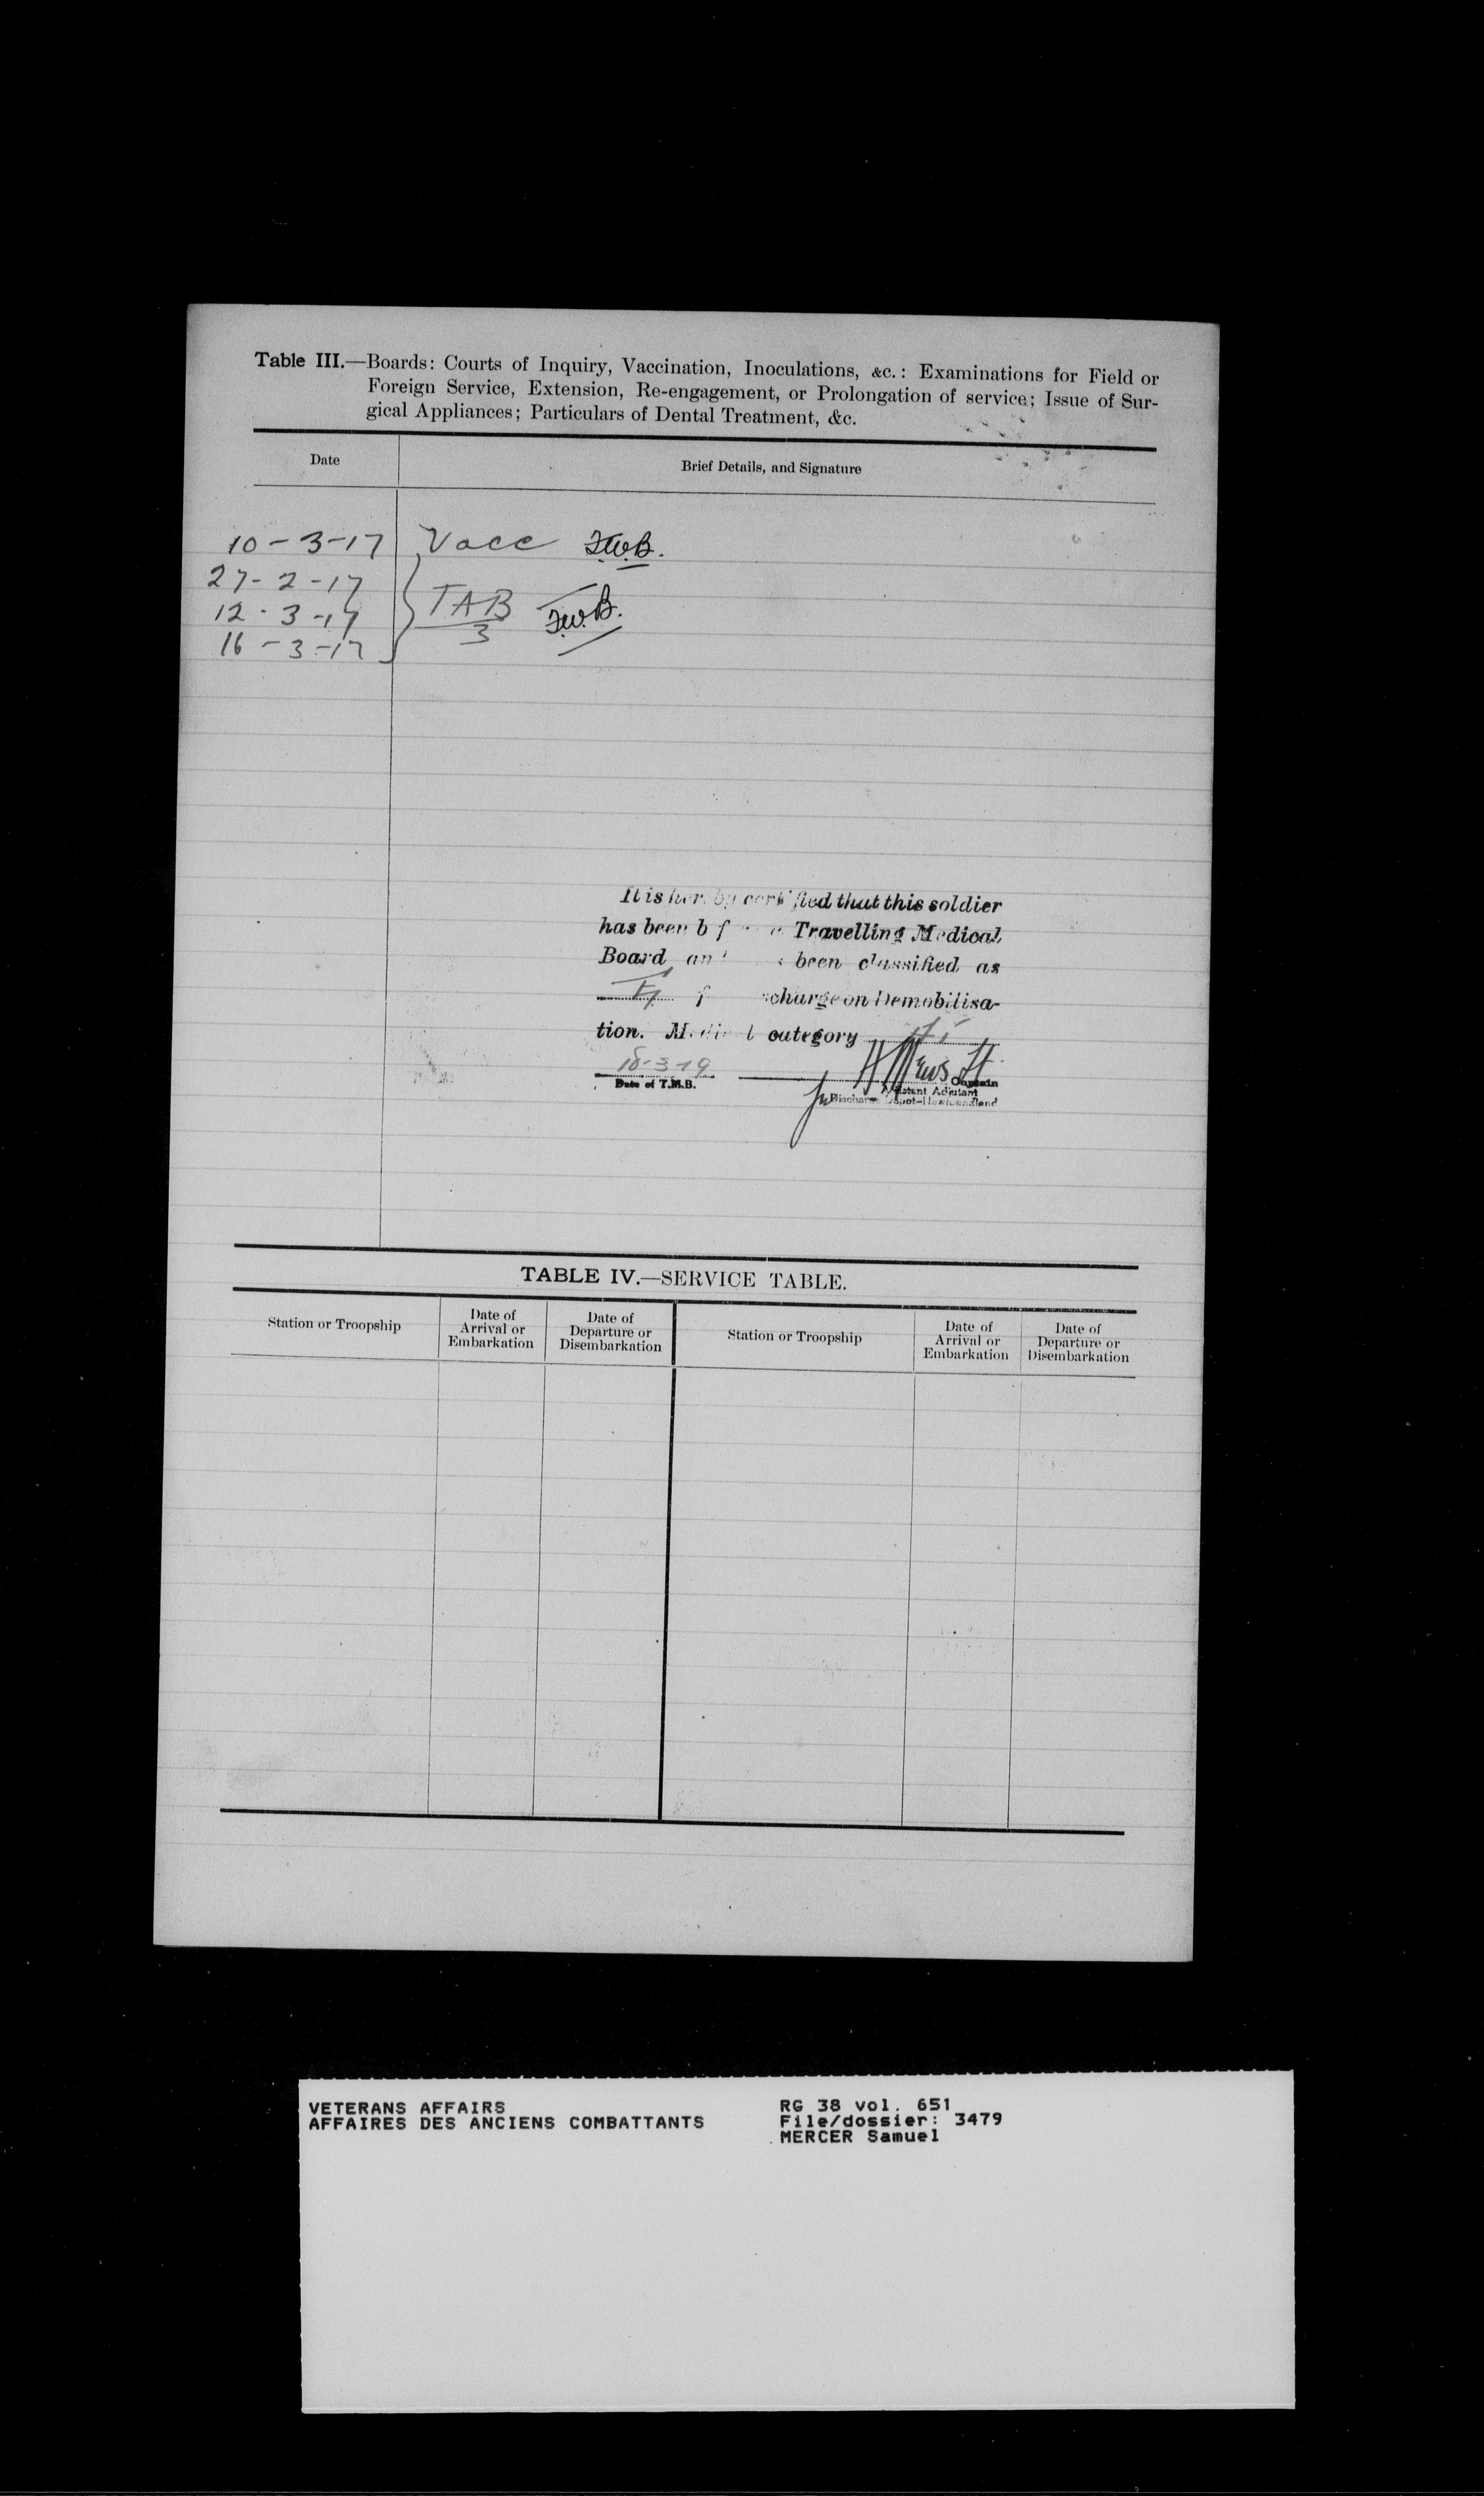 Table III.—Boards: Courts of Inquiry, Vaccination, Inoculations, &c.: Examinations for Field or
Foreign Service, Extension, Re-engagement, or Prolongation of service; Issue of Sur-
gical Appliances; Particulars of Dental Treatment, &c.
Date
Brief Details, and Signature
10-3-17 Vacc F.W.B.
27-2-17
12-3-17 TAB F.W.B.
3
16-3-17
It is hereby certified that this soldier
has been Travelling Medical
Board been classified as
on Demobilisa-
tion. Medical category
18-3-19
Captain
Date of T.M.B.
Assistant Adjutant
Discharge Depot-Newfoundland
TABLE IV.—SERVICE TABLE.
Station or Troopship
Date of
Arrival or
Embarkation
Date of
Departure or
Disembarkation
Station or Troopship
Date of
Arrival or
Embarkation
Date of
Departure or
Disembarkation
VETERANS AFFAIRS
AFFAIRES DES ANCIENS COMBATTANTS
RG 38 vol. 651
File/dossier: 3479
MERCER Samuel